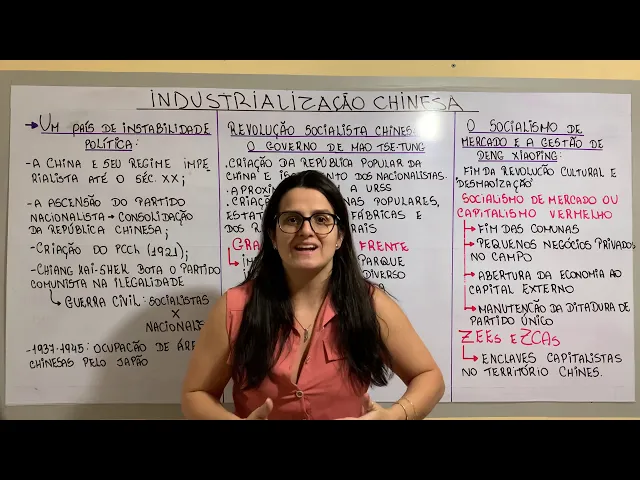 INDUSTRIALIZAÇÃO CHINESA
UM PAÍS DE INSTABILIDADE
POLÍTICA:
- A CHINA E SEU REGIME IMPE-
RIALISTA ATÉ O SÉC. XX;
- A ASCENSÃO DO PARTIDO
NACIONALISTA → CONSOLIDAÇÃO
DA REPÚBLICA CHINESA;
- CRIAÇÃO DO PCCh (1921);
- CHIANG KAI-SHEK BOTA O PARTIDO
COMUNISTA NA ILEGALIDADE
GUERRA CIVIL: SOCIALISTAS
X
- 1937-1945: OCUPAÇÃO DE
CHINESAS PELO JAPÃO
REVOLUÇÃO SOCIALISTA CHINES
O GOVERNO DE MAO TSE-TUNG
. CRIAÇÃO DA REPÚBLICA POPULAR DA
CHINA E NACIONALISTAS.
A URSS
POPULARES,
FÁBRICAS E
FRENTE
PARQUE
DIVERSO
O SOCIALISMO DE
MERCADO E A GESTÃO DE
DENG XIAOPING:
FIM DA REVOLUÇÃO CULTURAL E
"DESMAOIZAÇÃO"
SOCIALISMO DE MERCADO OU
CAPITALISMO VERMELHO
→ FIM DAS COMUNAS
→ PEQUENOS NEGÓCIOS PRIVADOS
NO CAMPO
→ ABERTURA DA ECONOMIA AO
CAPITAL EXTERNO
→ MANUTENÇÃO DA DITADURA DE
PARTIDO ÚNICO
ZEEs E ZCAs
→ ENCLAVES CAPITALISTAS
NO TERRITÓRIO CHINES.